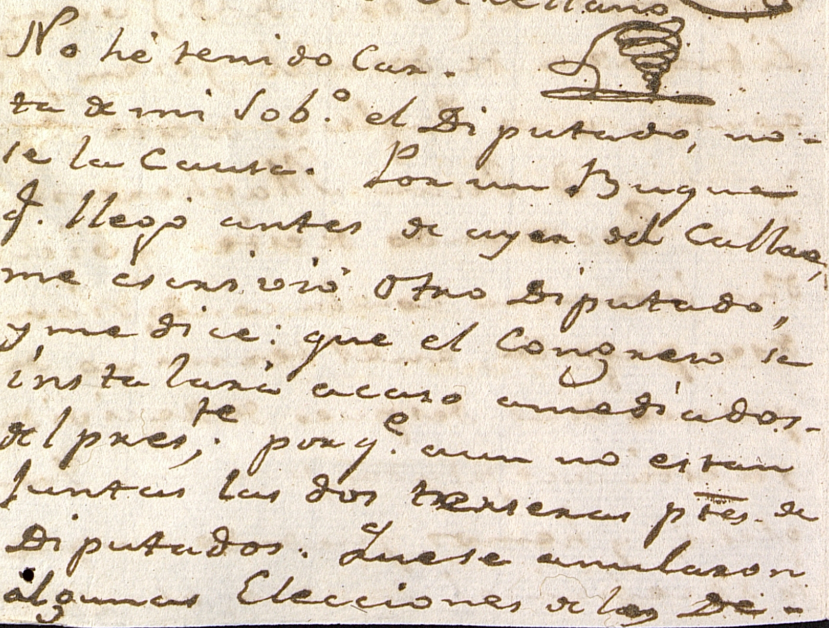 No hé tenido Car-
ta de mi Sob.º el Diputado, no-
se la Causa. Por un Buque
q. llegó antes de ayer del Callao,
me escrivió otro Diputado,
y me dice: que el Congreso se
instalará acaso amediados-
del pres.te porq.e aun no estan
juntas las dos terseras ptes. de
Diputados. Quese anularon
algunas Elecciones de los De-